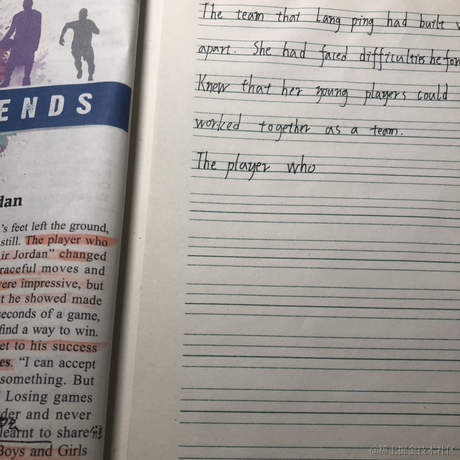 ENDS
dan
's feet left the ground,
still. The player who
ir Jordan" changed
raceful moves and
ere impressive, but
t he showed made
seconds of a game,
find a way to win.
et to his success
es. "I can accept
something. But
Losing games
der and never
learnt to share
Boys and Girls
The team that Lang ping had built
apart. She had faced difficulties before
Knew that her young players could
worked together as a team.
The player who